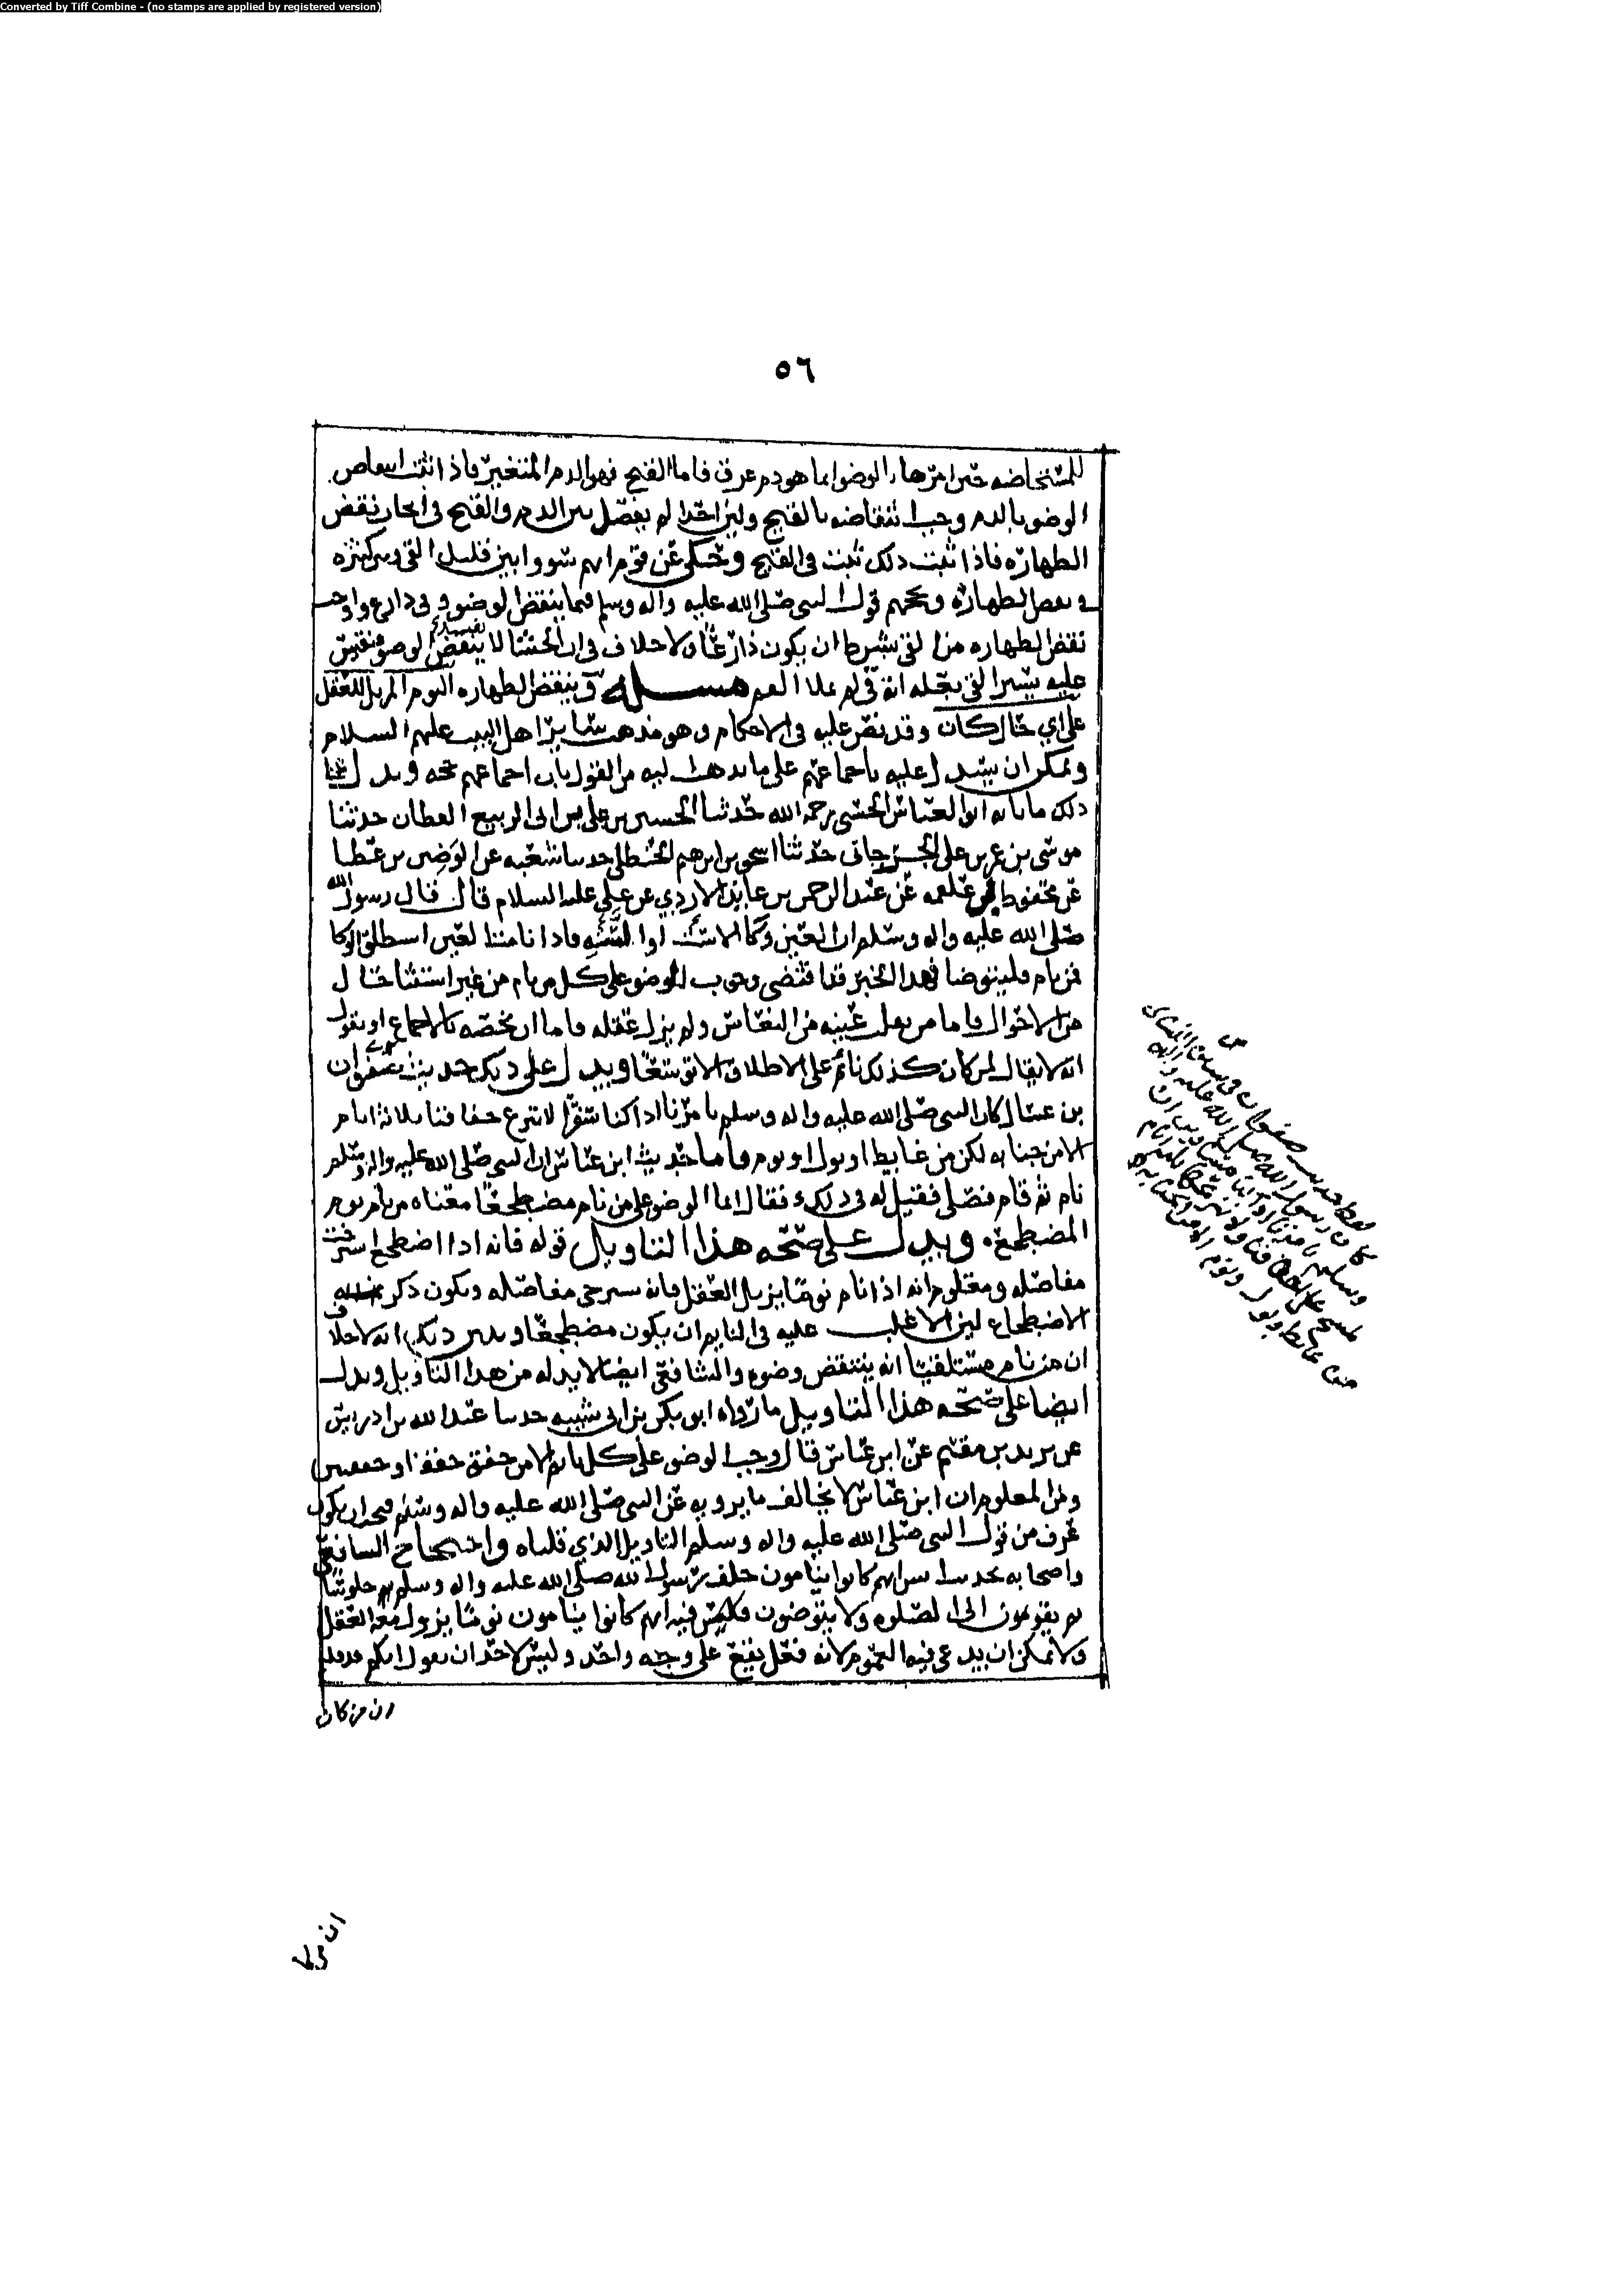 Converted by Tiff Combine - (no stamps are applied by registered version)
٥٦
للمستحاضه حين امرها بالوضو انما هو دم عرق فاما القيح فهو الدم المتغير فاذا ثبت انتقاض
الوضو بالدم وجب انتقاضه بالقيح ولين احدا لم يفصل بين الدم والقيح في ايجاب نقض
الطهاره فاذا ثبت ذلك ثبت في القيح وحكي عن قوم انهم سووا بين قليل القي وبين كثيره
في نقض الطهاره ويحجهم قول النبي صلى الله عليه واله وسلم فيما ينقض الوضو وقي ذارع واوجب
نقض الطهاره من القي بشرط ان يكون ذارعا ولا خلاف في ان الجشا لا ينقض الوضو فنقيس
عليه يسير القي بعله انه قي لم يملا الفم مسله وينقض الطهاره النوم المزيل للعقل
على اي حال كان وقد نص عليه في الاحكام وهو مذهب ساير اهل البيت عليهم السلام
ويمكن ان يستدل عليه باجماعهم على ما يذهب اليه من القول بان اجماعهم حجه ويدل على
ذلك ما انابه ابو العباس الحسني رحمه الله حدثنا الحسين بن علي بن ابي الربيع القطان حدثنا
موسى بن عمر بن علي الجرجاني حدثنا اسحق بن ابرهيم الحنظلي حدثنا شعبه عن الوضين بن عطا
عن محفوظ بن علقمه عن عبد الرحمن بن عايذ الازدي عن علي عليه السلام قال قال رسول الله
صلى الله عليه واله وسلم ان العين وكا الاست او السته فاذا نامت العين استطلق الوكا
فمن نام فليتوضا فهذا الخبر قد اقتضى وجوب الوضو على كل من نام من غير استثنا حال
من الاحوال فاما من نعست عينيه من النعاس ولم يزل عقله فاما ان نخصه بالاجماع او نقول
انه لا يقال لمن كان كذلك نائم على الاطلاق الا توسعا ويدل على ذلك حديث صفوان
بن عسال كان النبي صلى الله عليه واله وسلم يامرنا اذا كنا سفرا لا ننزع خفافنا ثلاثه ايام
الا من جنابه لكن من غايط او بول او نوم فاما حديث ابن عباس ان النبي صلى الله عليه واله وسلم
نام ثم قام فصلى فقيل له في ذلك فقال انما الوضو على من نام مضطجعا معناه من نام نوم
المضطجع. ويدل على صحه هذا التاويل قوله فانه اذا اضطجع استرخت
مفاصله ومعلوم انه اذا نام نوما يزيل العقل فانه يسترخي مفاصله ويكون ذكر
الاضطجاع لين الاغلب عليه في النايم ان يكون مضطجعا ويبين ذلك انه لا خلاف
ان من نام مستلقيا انه ينتقض وضوه والشافعي ايضا لا بد له من هذا التاويل ويدل
ايضا على صحه هذا التاويل ما رواه ابو بكر بن ابي شيبه حدثنا عبد الله بن ادريس
عن يزيد بن مقسم عن ابن عباس قال وجب الوضو على كل نايم الا من خفق خفقه او خفقتين
ومن المعلوم ان ابن عباس لا يخالف ما يرويه عن النبي صلى الله عليه واله وسلم فيجب ان يكون
عرف من قول النبي صلى الله عليه واله وسلم التاويل الذي قلناه واحتجاج الشافعي
واصحابه بحديث انس انهم كانوا ينامون خلف رسول الله صلى الله عليه واله وسلم جلوسا
ثم يقومون الى الصلوه ولا يتوضون فليس فيه انهم كانوا ينامون نوما يزول معه العقل
ولا يمكن ان يدعى فيه العموم لانه فعل يقع على وجه واحد وليس لاحد ان يقول انكم
ان من كان